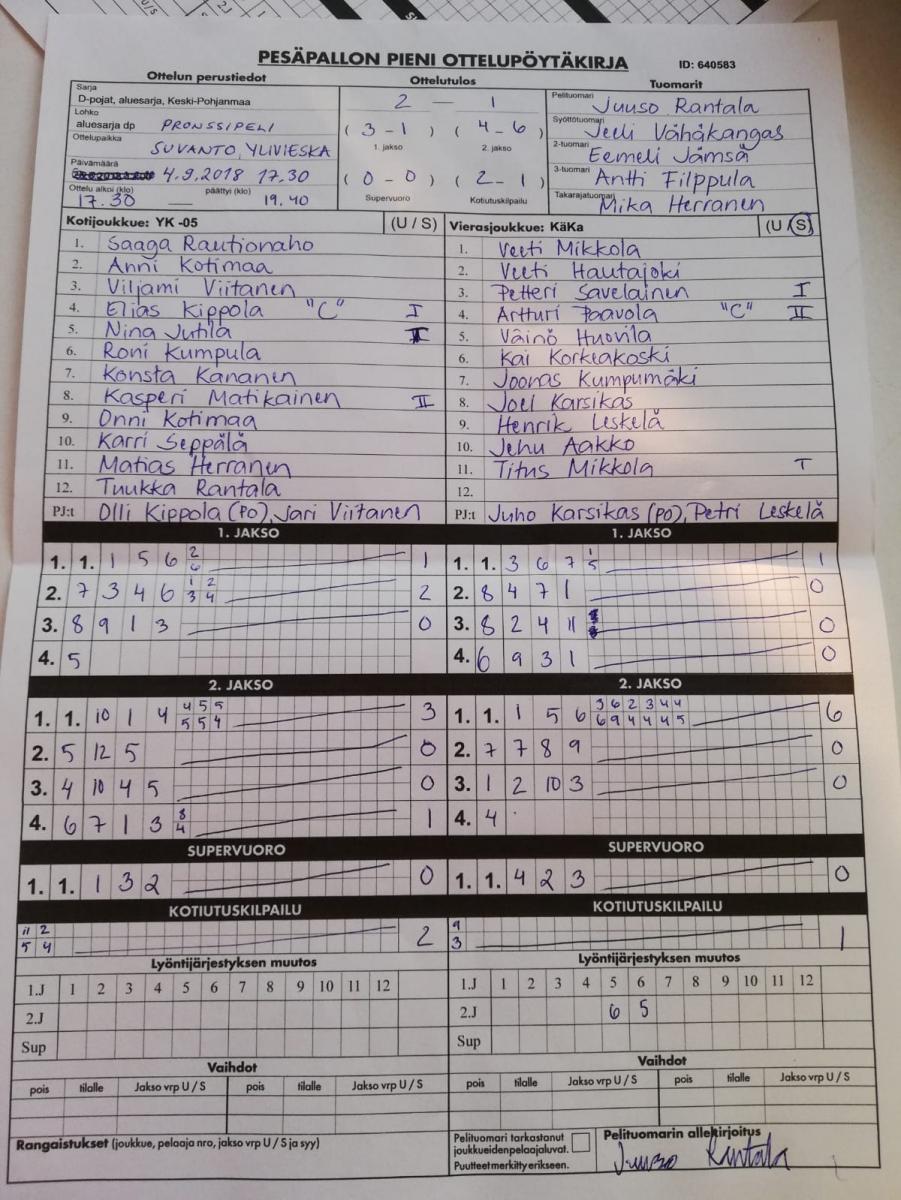 PESÄPALLON PIENI OTTELUPÖYTÄKIRJA ID: 640583
Ottelun perustiedot Ottelutulos Tuomarit
Sarja
D-pojat, aluesarja, Keski-Pohjanmaa
Lohko
aluesarja dp PRONSSIPELI
Ottelupaikka
SUVANTO, YLIVIESKA
Päivämäärä
4.9.2018 17.30
Ottelu alkoi (klo) päättyi (klo)
17.30 — 19.40
2 — 1
( 3 - 1 ) ( 4 - 6 )
1. jakso 2. jakso
( 0 - 0 ) ( 2 - 1 )
Supervuoro Kotiutuskilpailu
Pelituomari Juuso Rantala
Syöttötuomari Jeeli Vähäkangas
2-tuomari Eemeli Jämsä
3-tuomari Antti Filppula
Takarajatuomari Mika Herranen
Kotijoukkue: YK -05 (U / S)
1. Saaga Rautionaho
2. Anni Kotimaa
3. Viljami Viitanen
4. Elias Kippola "C" I
5. Nina Jutila
6. Roni Kumpula
7. Konsta Kananen
8. Kasperi Matikainen II
9. Onni Kotimaa
10. Karri Seppälä
11. Matias Herranen
12. Tuukka Rantala
PJ:t Olli Kippola (PO), Jari Viitanen
Vierasjoukkue: KäKa (U / S)
1. Veeti Mikkola
2. Veeti Hautajoki
3. Petteri Savelainen I
4. Artturi Paavola "C" II
5. Väinö Huovila
6. Kai Korkeakoski
7. Joonas Kumpumäki
8. Joel Karsikas
9. Henrik Leskelä
10. Jehu Aakko
11. Titus Mikkola T
12.
PJ:t Juho Karsikas (PO), Petri Leskelä
1. JAKSO
1. 1. 1 5 6 2 6 1
2. 7 3 4 6 1 3 2 4 2
3. 8 9 1 3 0
4. 5
1. JAKSO
1. 1. 3 6 7 1 5 1
2. 8 4 7 1 0
3. 8 2 4 11 0
4. 6 9 3 1 0
2. JAKSO
1. 1. 10 1 4 4 5 5 5 5 4 3
2. 5 12 5 0
3. 4 10 4 5 0
4. 6 7 1 3 8 4 1
2. JAKSO
1. 1. 1 5 6 3 6 2 3 4 4 6 9 4 4 4 5 6
2. 7 7 8 9 0
3. 1 2 10 3 0
4. 4
SUPERVUORO
1. 1. 1 3 2 0
SUPERVUORO
1. 1. 4 2 3 0
KOTIUTUSKILPAILU
11 2
5 4 2
KOTIUTUSKILPAILU
9
3 1
Lyöntijärjestyksen muutos
1.J 1 2 3 4 5 6 7 8 9 10 11 12
2.J
Sup
Lyöntijärjestyksen muutos
1.J 1 2 3 4 5 6 7 8 9 10 11 12
2.J 6 5
Sup
Vaihdot
pois tilalle Jakso vrp U / S pois tilalle Jakso vrp U / S
Vaihdot
pois tilalle Jakso vrp U / S pois tilalle Jakso vrp U / S
Rangaistukset (joukkue, pelaaja nro, jakso vrp U / S ja syy)
Pelituomari tarkastanut
joukkueidenpelaajaluvat.
Puutteet merkitty erikseen.
Pelituomarin allekirjoitus
Juuso Rantala